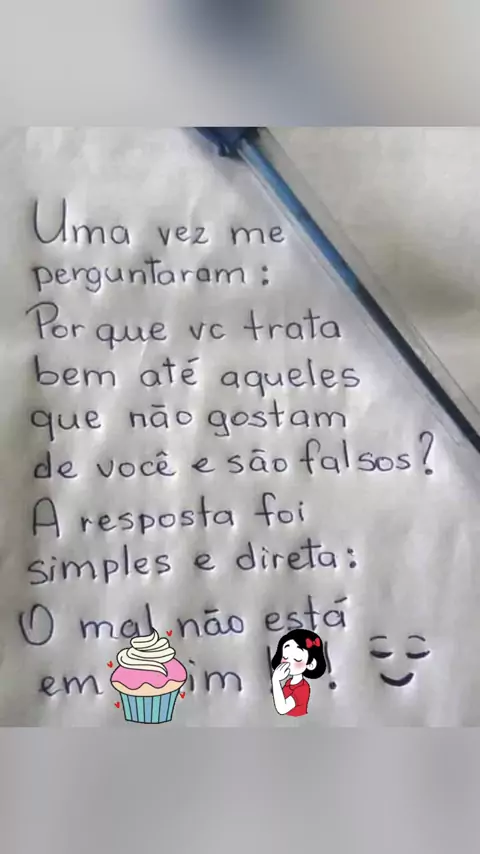 Uma vez me
perguntaram:
Por que vc trata
bem até aqueles
que não gostam
de você e são falsos?
A resposta foi
simples e direta:
O mal não está
em im !